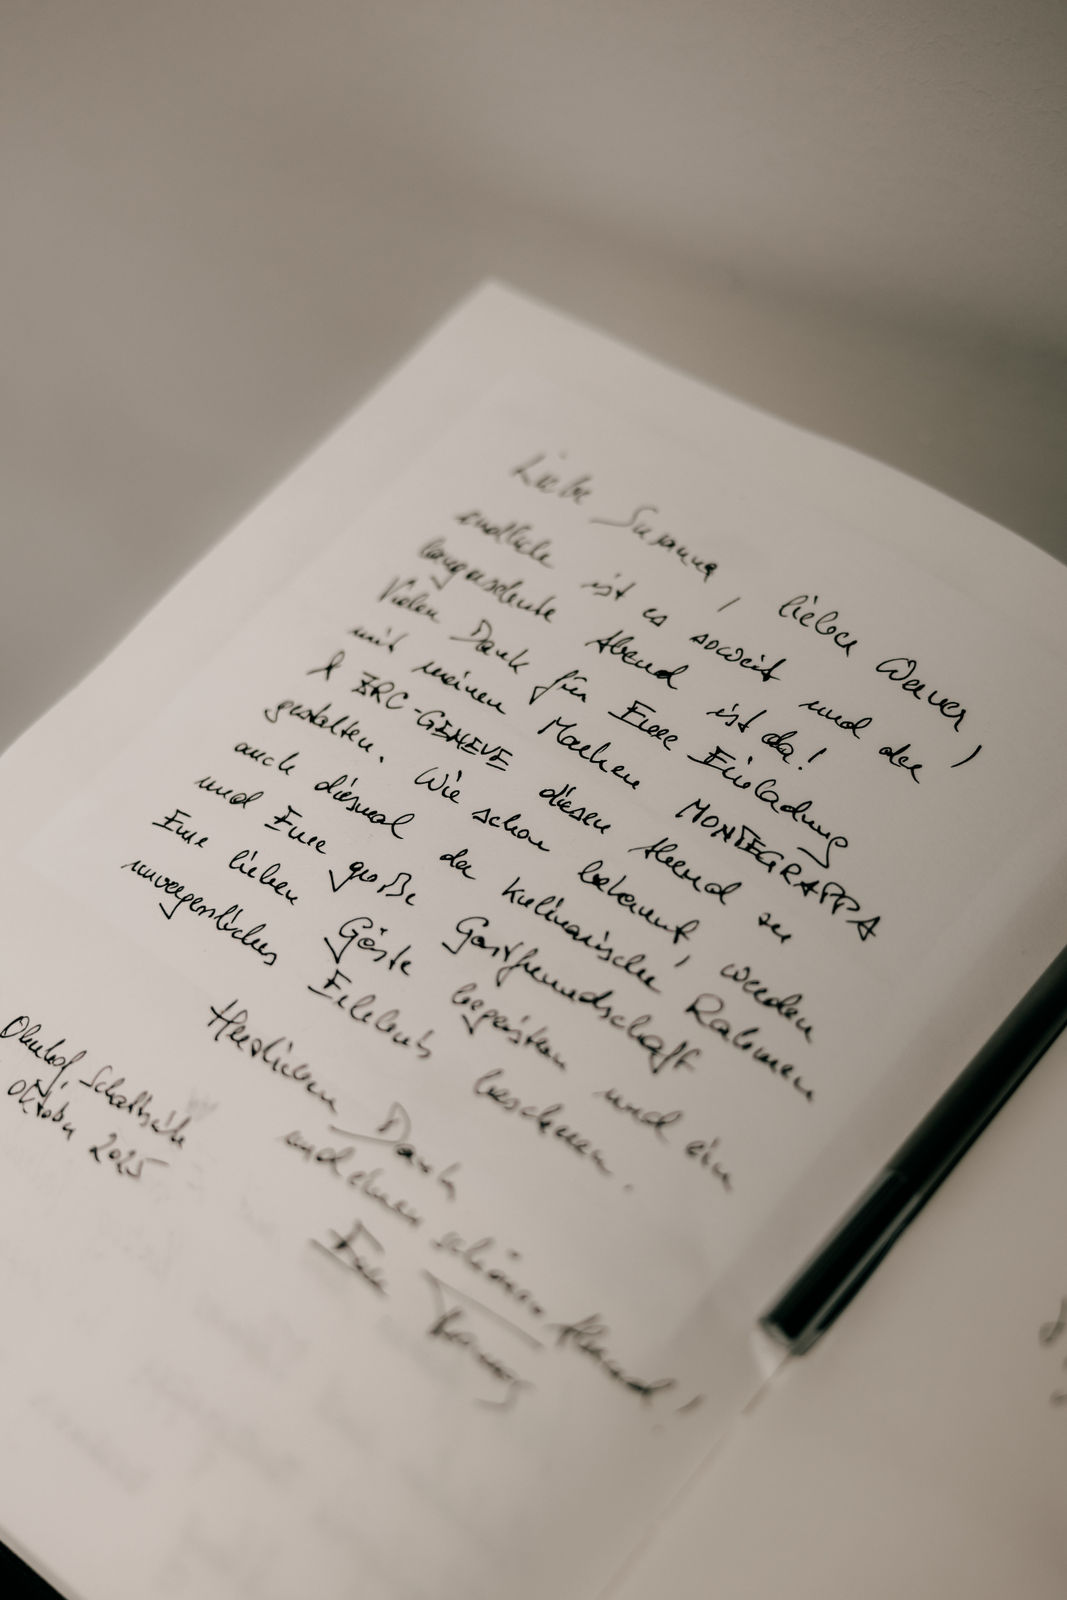 Liebe Susanna, lieber Werner,
endlich ist es soweit und der
langersehnte Abend ist da!
Vielen Dank für Eure Einladung
mit meinen Marken MONTEGRAPPA
& ZRC-GENEVE diesen Abend zu
gestalten. Wie schon bekannt, werden
auch diesmal der kulinarische Rahmen
und Eure große Gastfreundschaft
Eure lieben Gäste begeistern und ein
unvergessliches Erlebnis bescheren.
Herzlichen Dank
und einen schönen Abend!
Euer
Oktober 2025